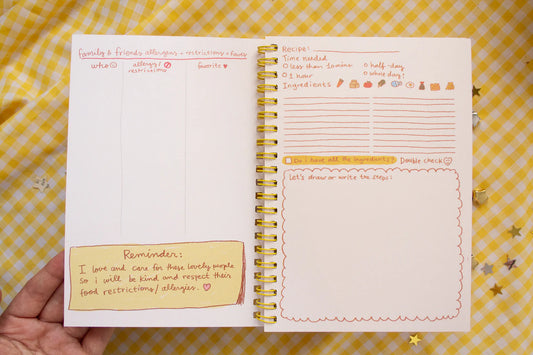 family & friends allergies + restrictions + faves
who
allergy/
restrictions
favorite
Reminder:
I love and care for these lovely people
so i will be kind and respect their
food restrictions/allergies.
Recipe:
Time needed
less than 30mins
half-day
1 hour
whole day!
Ingredients
Do i have all the ingredients?
Double check
Let's draw or write the steps!